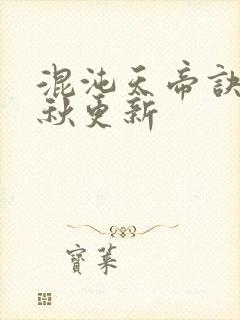 混沌天帝訣
秋更新
寶葉